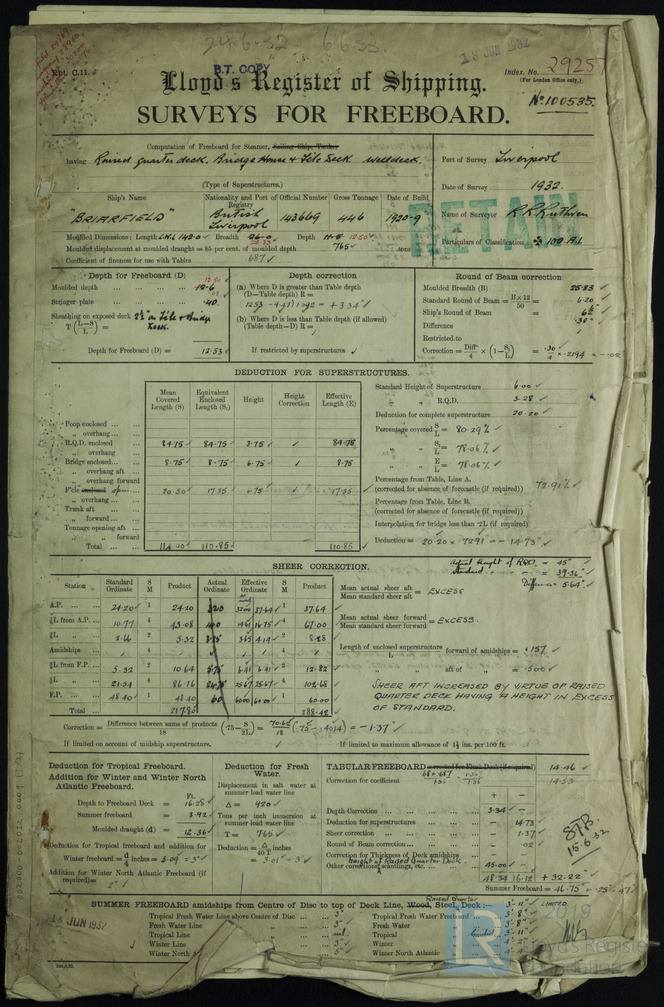 24.6.32 6.6.33.
18 JUN 1932
B.T. COPY
Rpt. C.11.
Index. No. 2925
(For London Office only.)
Lloyd's Register of Shipping.
No 100535.
SURVEYS FOR FREEBOARD.
Computation of Freeboard for Steamer, Sailing Ship, Tanker
having Raised quarter deck, Bridge House & F'cle Deck welldeck.
(Type of Superstructures.)
Port of Survey Liverpool
Date of Survey 1932.
Name of Surveyor R.R. Ruthven
Particulars of Classification 100 A1
RETAIN
Ship's Name Nationality and Port of Registry Official Number Gross Tonnage Date of Build
"BRIARFIELD" British Liverpool 143669 446 1920-9
Moulded Dimensions: Length 142.0 Breadth 26.0 Depth 11.5 12.50
25.83
Moulded displacement at moulded draught = 85 per cent. of moulded depth 765 tons
Coefficient of fineness for use with Tables .687
Depth for Freeboard (D)
Moulded depth 12.6
Stringer plate .40
Sheathing on exposed deck 2½" on F'cle & Bridge Deck.
T (L-S/L) =
Depth for Freeboard (D) = 12.53
Depth correction
(a) Where D is greater than Table depth
(D—Table depth) R =
(12.53 - 9.47) 1.092 = + 3.34
(b) Where D is less than Table depth (if allowed)
(Table depth—D) R =
If restricted by superstructures
Round of Beam correction
Moulded Breadth (B) 25.83
Standard Round of Beam = B×12/50 = 6.20
Ship's Round of Beam = 6½
Difference .30
Restricted to
Correction = Diff/4 × (1-S/L) = .30/4 × .2194 = -.02
DEDUCTION FOR SUPERSTRUCTURES.
Mean Covered Length (S) Equivalent Enclosed Length (S₁) Height Height Correction Effective Length (E)
Poop enclosed
„ overhang
R.Q.D. enclosed 84.75 84.75 3.75 84.75
„ overhang
Bridge enclosed 8.75 8.75 6.75 8.75
„ overhang aft
„ overhang forward
F'cle enclosed open 20.50 17.35 6.75 17.35
„ overhang
Trunk aft
„ forward
Tonnage opening aft
„ „ forward
Total 114.00 110.85 110.85
Standard Height of Superstructure 6.00
„ „ R.Q.D. 3.28
Deduction for complete superstructure 20.20
Percentage covered S/L = 80.29%
„ „ S₁/L = 78.06%
„ „ E/L = 78.06%
Percentage from Table, Line A.
(corrected for absence of forecastle (if required)) 72.91%
Percentage from Table, Line B.
(corrected for absence of forecastle (if required))
Interpolation for bridge less than ·2L (if required)
Deduction = 20.20 × .7291 = - 14.73
SHEER CORRECTION.
Actual Height of RQD = 45"
Standard „ „ = 39.36"
Difference = 5.64"
Station Standard Ordinate S M Product Actual Ordinate Effective Ordinate S M Product
A.P. 24.20 1 24.20 37.64 1 37.64
⅙L from A.P. 10.77 4 43.08 16.75 4 67.00
⅓L „ 2.66 2 5.32 4.14 2 8.28
Amidships 4 4
⅓L from F.P. 5.32 2 10.64 6.41 6.41 2 12.82
⅙L „ 21.54 4 86.16 25.67 25.67 4 102.68
F.P. 48.40 1 48.40 60 60.00 60.00 1 60.00
Total 217.80 288.42
Mean actual sheer aft / Mean standard sheer aft = EXCESS
Mean actual sheer forward / Mean standard sheer forward = EXCESS.
Length of enclosed superstructure forward of amidships = .157
„ „ aft of „ = .500
SHEER AFT INCREASED BY VIRTUE OF RAISED
QUARTER DECK HAVING A HEIGHT IN EXCESS
OF STANDARD.
Correction = Difference between sums of products/18 (·75 - S/2L) = 70.62/18 (.75 - .4014) = - 1.37
If limited on account of midship superstructure.
If limited to maximum allowance of 1½ ins. per 100 ft.
Deduction for Tropical Freeboard.
Addition for Winter and Winter North
Atlantic Freeboard.
Ft.
Depth to Freeboard Deck = 16.28
Summer freeboard = 3.92
Moulded draught (d) = 12.36
Deduction for Tropical freeboard and addition for
Winter freeboard = d/4 inches = 3.09 = 3"
Addition for Winter North Atlantic Freeboard (if
required) = 2"
Deduction for Fresh
Water.
Displacement in salt water at
summer load water line
Δ = 920
Tons per inch immersion at
summer load water line
T = 7.65
Deduction = Δ/40T inches
= 3.01 = 3"
TABULAR FREEBOARD corrected for Flush Deck (if required) 14.46
Correction for coefficient 14.53
+ −
Depth Correction 3.34 —
Deduction for superstructures — 14.73
Sheer correction — 1.37
Round of Beam correction — .02
Correction for Thickness of Deck amidships
Height of Raised Quarter Deck
Other corrections, scantlings, etc. 45.00 —
48.34 16.12 + 32.22
Summer Freeboard = 46.75
15.6.32
SUMMER FREEBOARD amidships from Centre of Disc to top of Deck Line, Wood, Steel, Deck:—
Raised Quarter
18 JUN 1932
Tropical Fresh Water Line above Centre of Disc 3"
Fresh Water Line „ 3"
Tropical Line „ nil
Winter Line 3"
Winter North 5"
LIMITED
Tropical Fresh Water Freeboard 3' 8"
Fresh Water „ 3' 8"
Tropical „ limited 3' 11"
Winter „
Winter North Atlantic „
2019
Lloyd's Register
Foundation